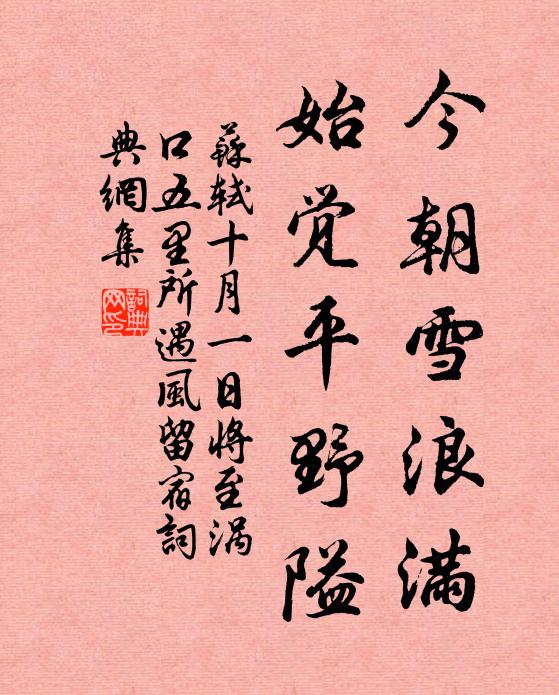 今朝雪浪滿
始觉平野隘
蘇軾十月一日將至涡
口五里所遇風留宿詞
典網集
詞典网印